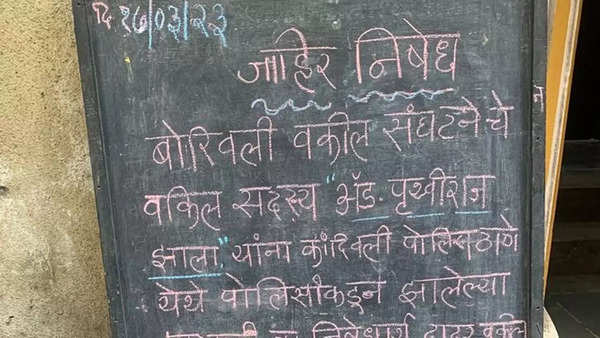 दि १७/०३/२३
जाहिर निषेध
बोरिवली वकील संघटनेचे
वकिल सदस्य "अ‍ॅड. पृथ्वीराज
झाला" यांना कांदिवली पोलिस ठाणे
येथे पोलिसांकडून झालेल्या
निषेधार्थ दादर वकील